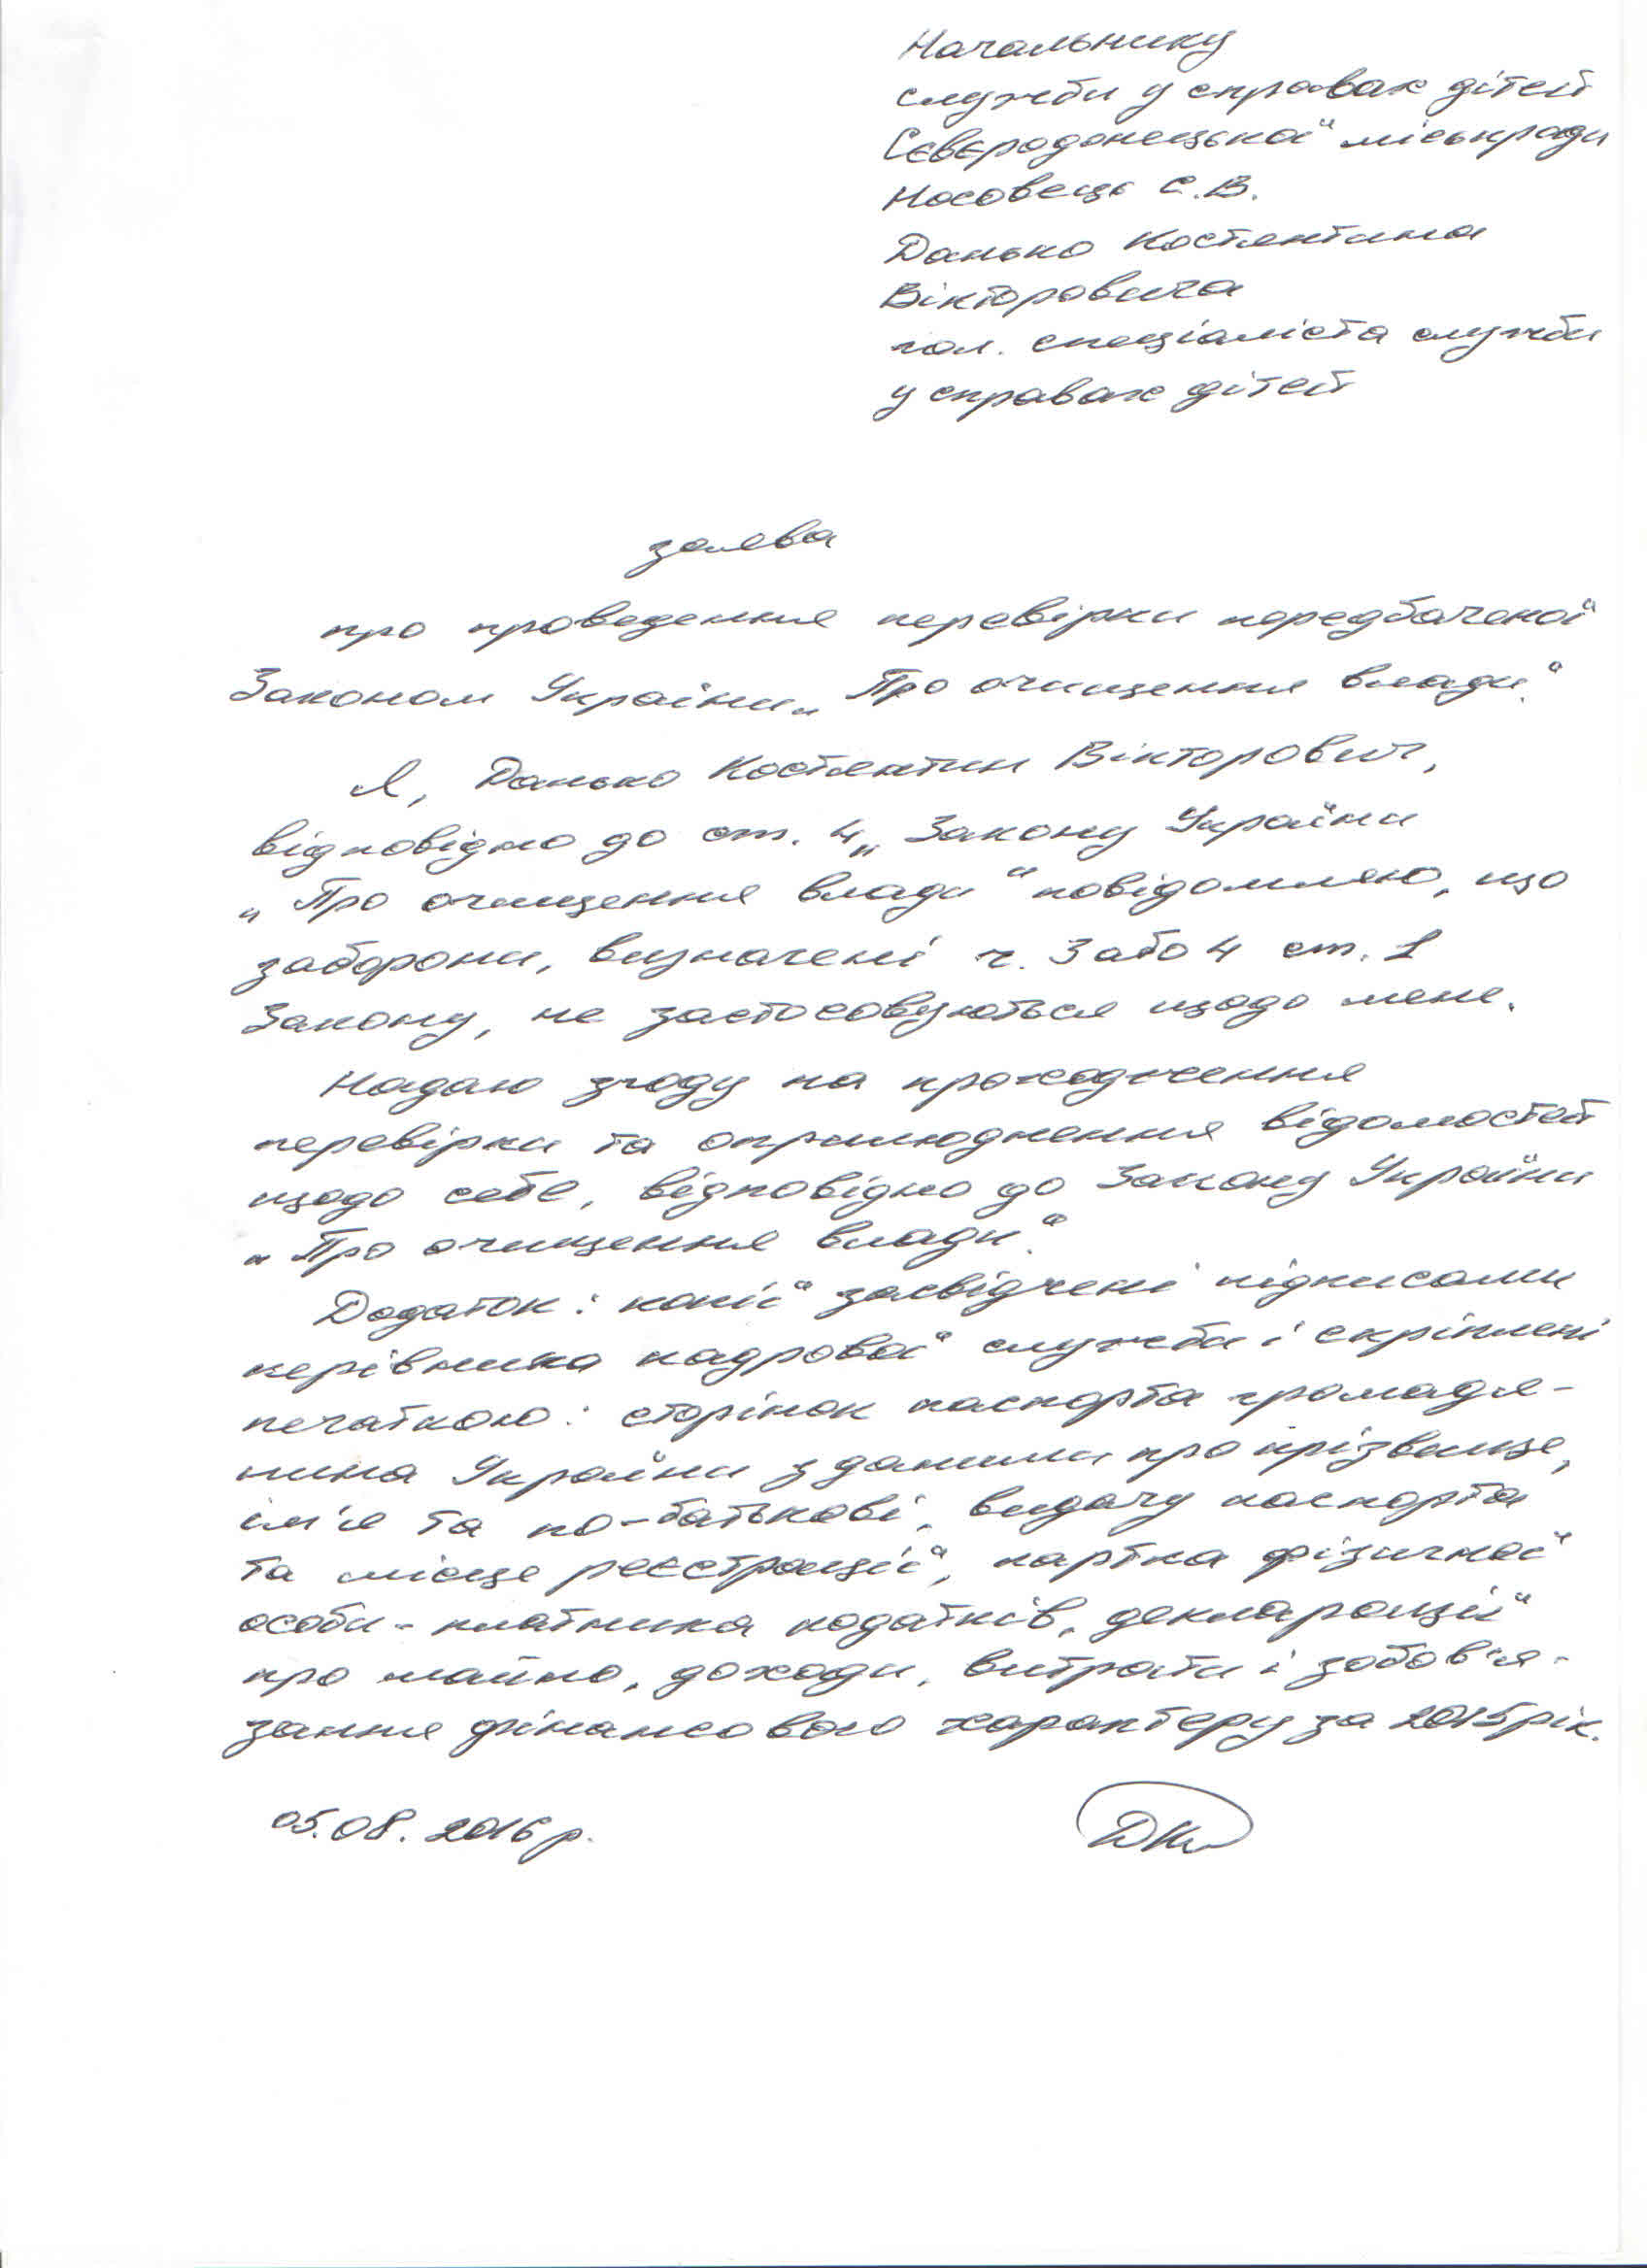 Начальнику
служби у справах дітей
Сєвєродонецької міськради
Носовець С.В.
Данько Костянтина
Вікторовича
гол. спеціаліста служби
у справах дітей
заява
про проведення перевірки передбаченої
Законом України „Про очищення влади".
Я, Данько Костянтин Вікторович,
відповідно до ст. 4„ Закону України
„Про очищення влади" повідомляю, що
заборони, визначені ч. 3 або 4 ст. 1
Закону, не застосовуються щодо мене.
Надаю згоду на проходження
перевірки та оприлюднення відомостей
щодо себе, відповідно до Закону України
„Про очищення влади".
Додаток: копії засвідчені підписами
керівника кадрової служби і скріплені
печаткою: сторінок паспорта громадя-
нина України з даними про прізвище,
ім'я та по-батькові, видачу паспорта
та місце реєстрації, картка фізичної
особи-платника податків, декларації
про майно, доходи, витрати і зобов'я-
зання фінансового характеру за 2015 рік.
05.08.2016 р.